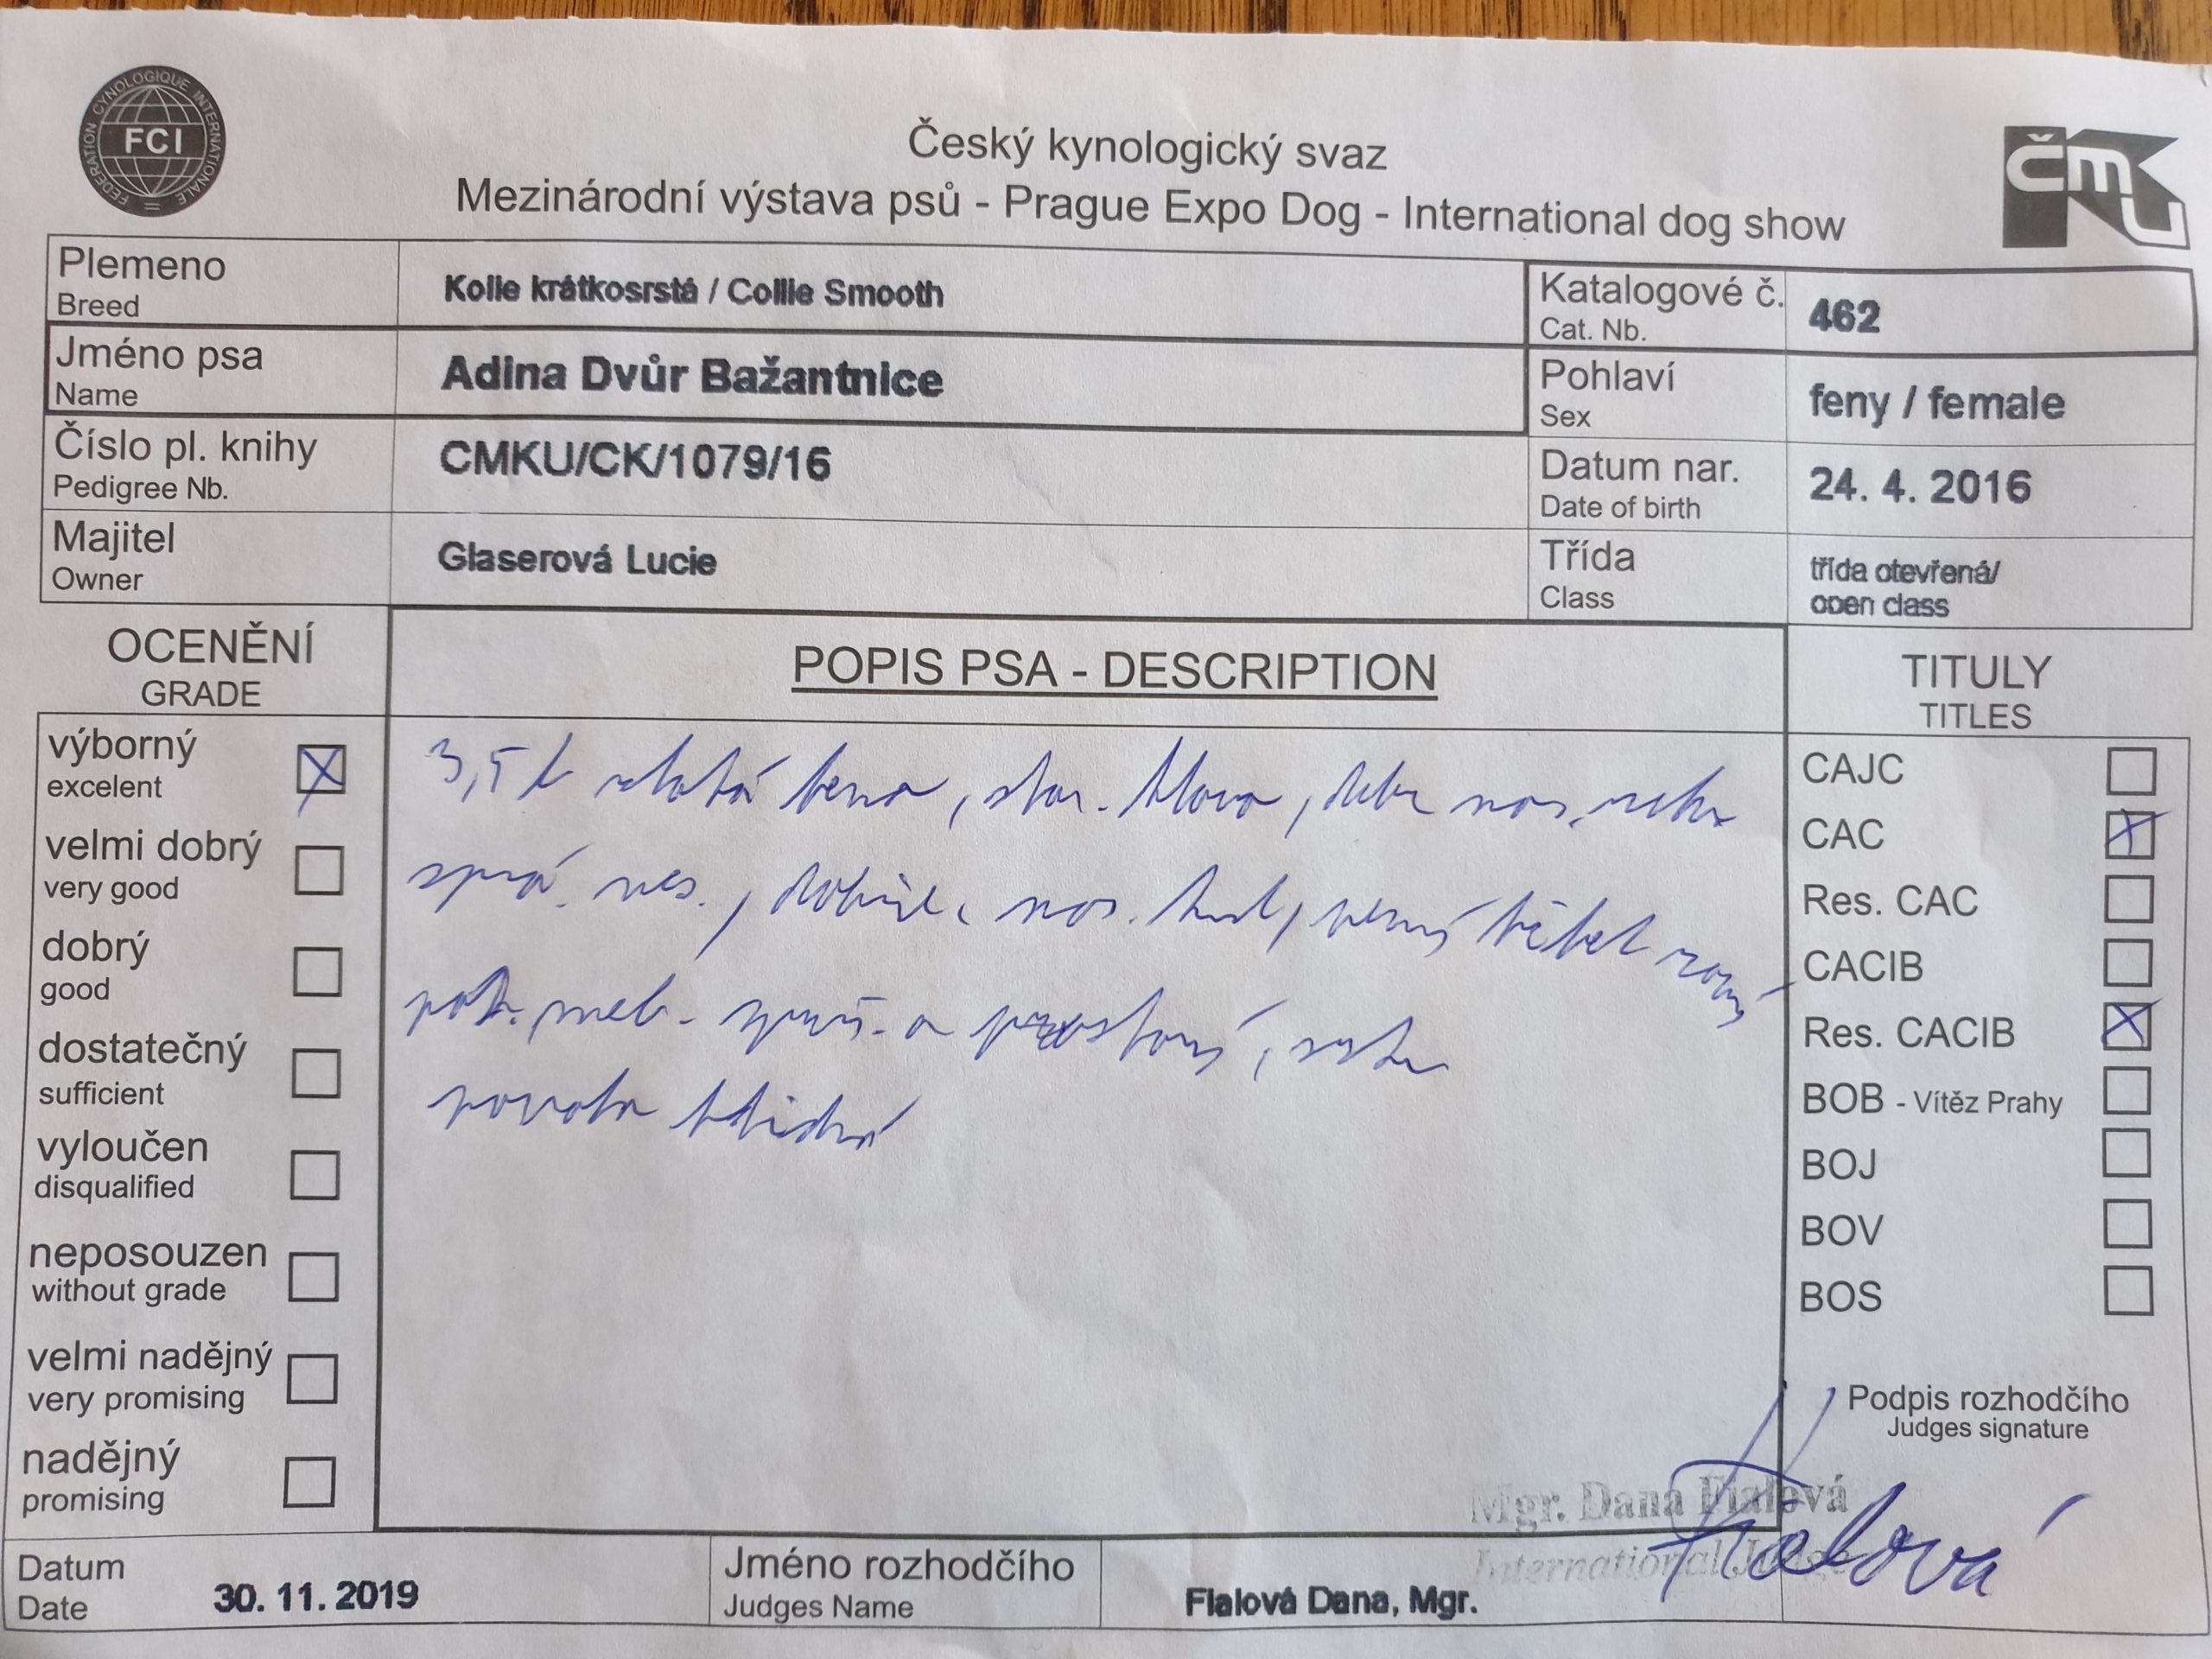 FEDERATION CYNOLOGIQUE INTERNATIONALE
FCI
Český kynologický svaz
Mezinárodní výstava psů - Prague Expo Dog - International dog show
ČMKU
Plemeno
Breed
Kolie krátkosrstá / Collie Smooth
Katalogové č.
Cat. Nb.
462
Jméno psa
Name
Adina Dvůr Bažantnice
Pohlaví
Sex
feny / female
Číslo pl. knihy
Pedigree Nb.
CMKU/CK/1079/16
Datum nar.
Date of birth
24. 4. 2016
Majitel
Owner
Glaserová Lucie
Třída
Class
třída otevřená/
open class
OCENĚNÍ
GRADE
POPIS PSA - DESCRIPTION
TITULY
TITLES
výborný
excelent
velmi dobrý
very good
dobrý
good
dostatečný
sufficient
vyloučen
disqualified
neposouzen
without grade
velmi nadějný
very promising
nadějný
promising
3,5 zlatá fena,
povaha klidná
CAJC
CAC
Res. CAC
CACIB
Res. CACIB
BOB - Vítěz Prahy
BOJ
BOV
BOS
Podpis rozhodčího
Judges signature
Mgr. Dana Fialová
International Judge
Fialová
Datum
Date
30. 11. 2019
Jméno rozhodčího
Judges Name
Fialová Dana, Mgr.